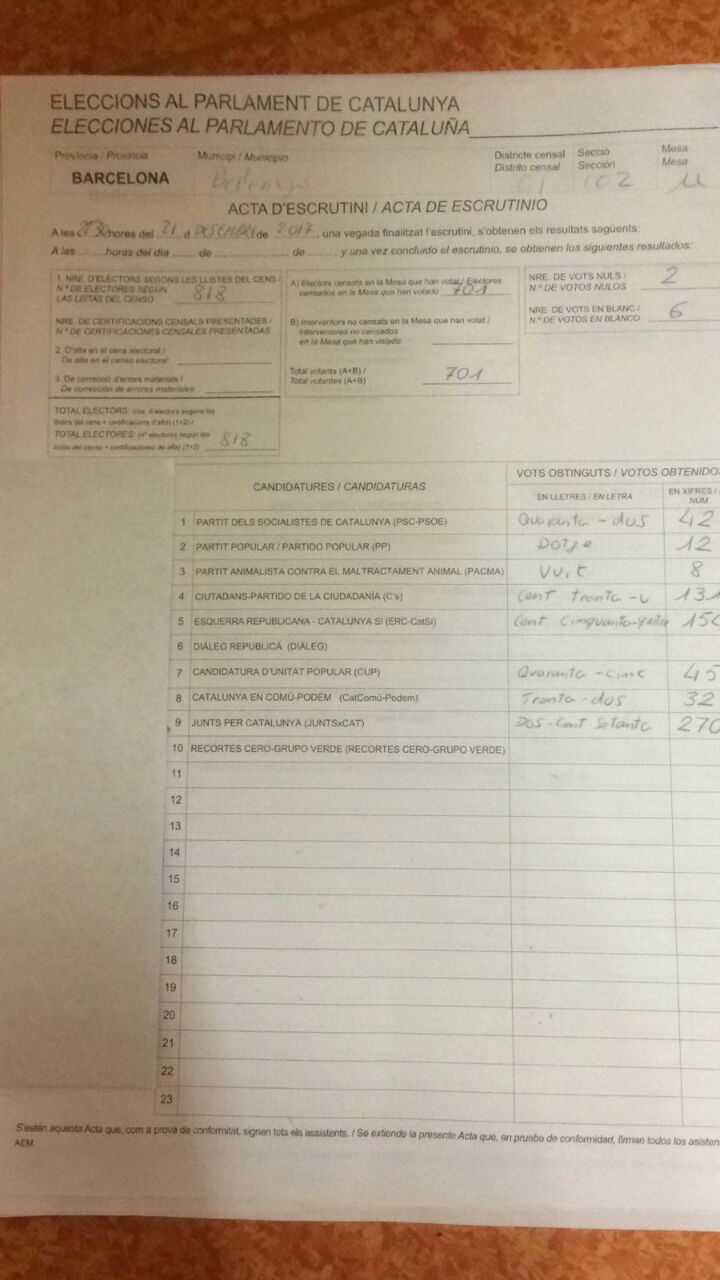 ELECCIONS AL PARLAMENT DE CATALUNYA
ELECCIONES AL PARLAMENTO DE CATALUÑA
Província / Provincia Municipi / Municipio Districte censal Secció Mesa
Distrito censal Sección Mesa
BARCELONA 02 U
ACTA D'ESCRUTINI / ACTA DE ESCRUTINIO
A les 23 hores del 21 d DESEMBRE de 2017, una vegada finalitzat l'escrutini, s'obtenen els resultats següents:
A las ........ horas del día ...... de ........................ de ........, y una vez concluido el escrutinio, se obtienen los siguientes resultados:
1. NRE. D'ELECTORS SEGONS LES LLISTES DEL CENS /
N.º DE ELECTORES SEGÚN
LAS LISTAS DEL CENSO 818
NRE. DE CERTIFICACIONS CENSALS PRESENTADES /
N.º DE CERTIFICACIONES CENSALES PRESENTADAS
2. D'alta en el cens electoral /
De alta en el censo electoral:
3. De correcció d'errors materials /
De corrección de errores materiales:
TOTAL ELECTORS: (nre. d'electors segons les
llistes del cens + certificacions d'alta) (1+2) /
TOTAL ELECTORES: (nº electores según las
listas del censo + certificaciones de alta) (1+2) 818
A) Electors censats en la Mesa que han votat / Electores
censados en la Mesa que han votado 701
B) Interventors no censats en la Mesa que han votat /
Interventores no censados
en la Mesa que han votado
Total votants (A+B) /
Total votantes (A+B) 701
NRE. DE VOTS NULS /
N.º DE VOTOS NULOS 2
NRE. DE VOTS EN BLANC /
N.º DE VOTOS EN BLANCO 6
CANDIDATURES / CANDIDATURAS VOTS OBTINGUTS / VOTOS OBTENIDO
EN LLETRES / EN LETRA EN XIFRES /
NÚM
1 PARTIT DELS SOCIALISTES DE CATALUNYA (PSC-PSOE) Quaranta-dos 42
2 PARTIT POPULAR / PARTIDO POPULAR (PP) Dotze 12
3 PARTIT ANIMALISTA CONTRA EL MALTRACTAMENT ANIMAL (PACMA) Vuit 8
4 CIUTADANS-PARTIDO DE LA CIUDADANÍA (C's) Cent tranta-u 131
5 ESQUERRA REPUBLICANA - CATALUNYA SÍ (ERC-CatSí) Cent Cinquanta-quatre 154
6 DIÀLEG REPUBLICÀ (DIÀLEG)
7 CANDIDATURA D'UNITAT POPULAR (CUP) Quaranta-cinc 45
8 CATALUNYA EN COMÚ-PODEM (CatComú-Podem) Tranta-dos 32
9 JUNTS PER CATALUNYA (JUNTSxCAT) DOS-Cent Setanta 270
10 RECORTES CERO-GRUPO VERDE (RECORTES CERO-GRUPO VERDE)
11
12
13
14
15
16
17
18
19
20
21
22
23
S'estén aquesta Acta que, com a prova de conformitat, signen tots els assistents. / Se extiende la presente Acta que, en prueba de conformidad, firman todos los asisten
AEM